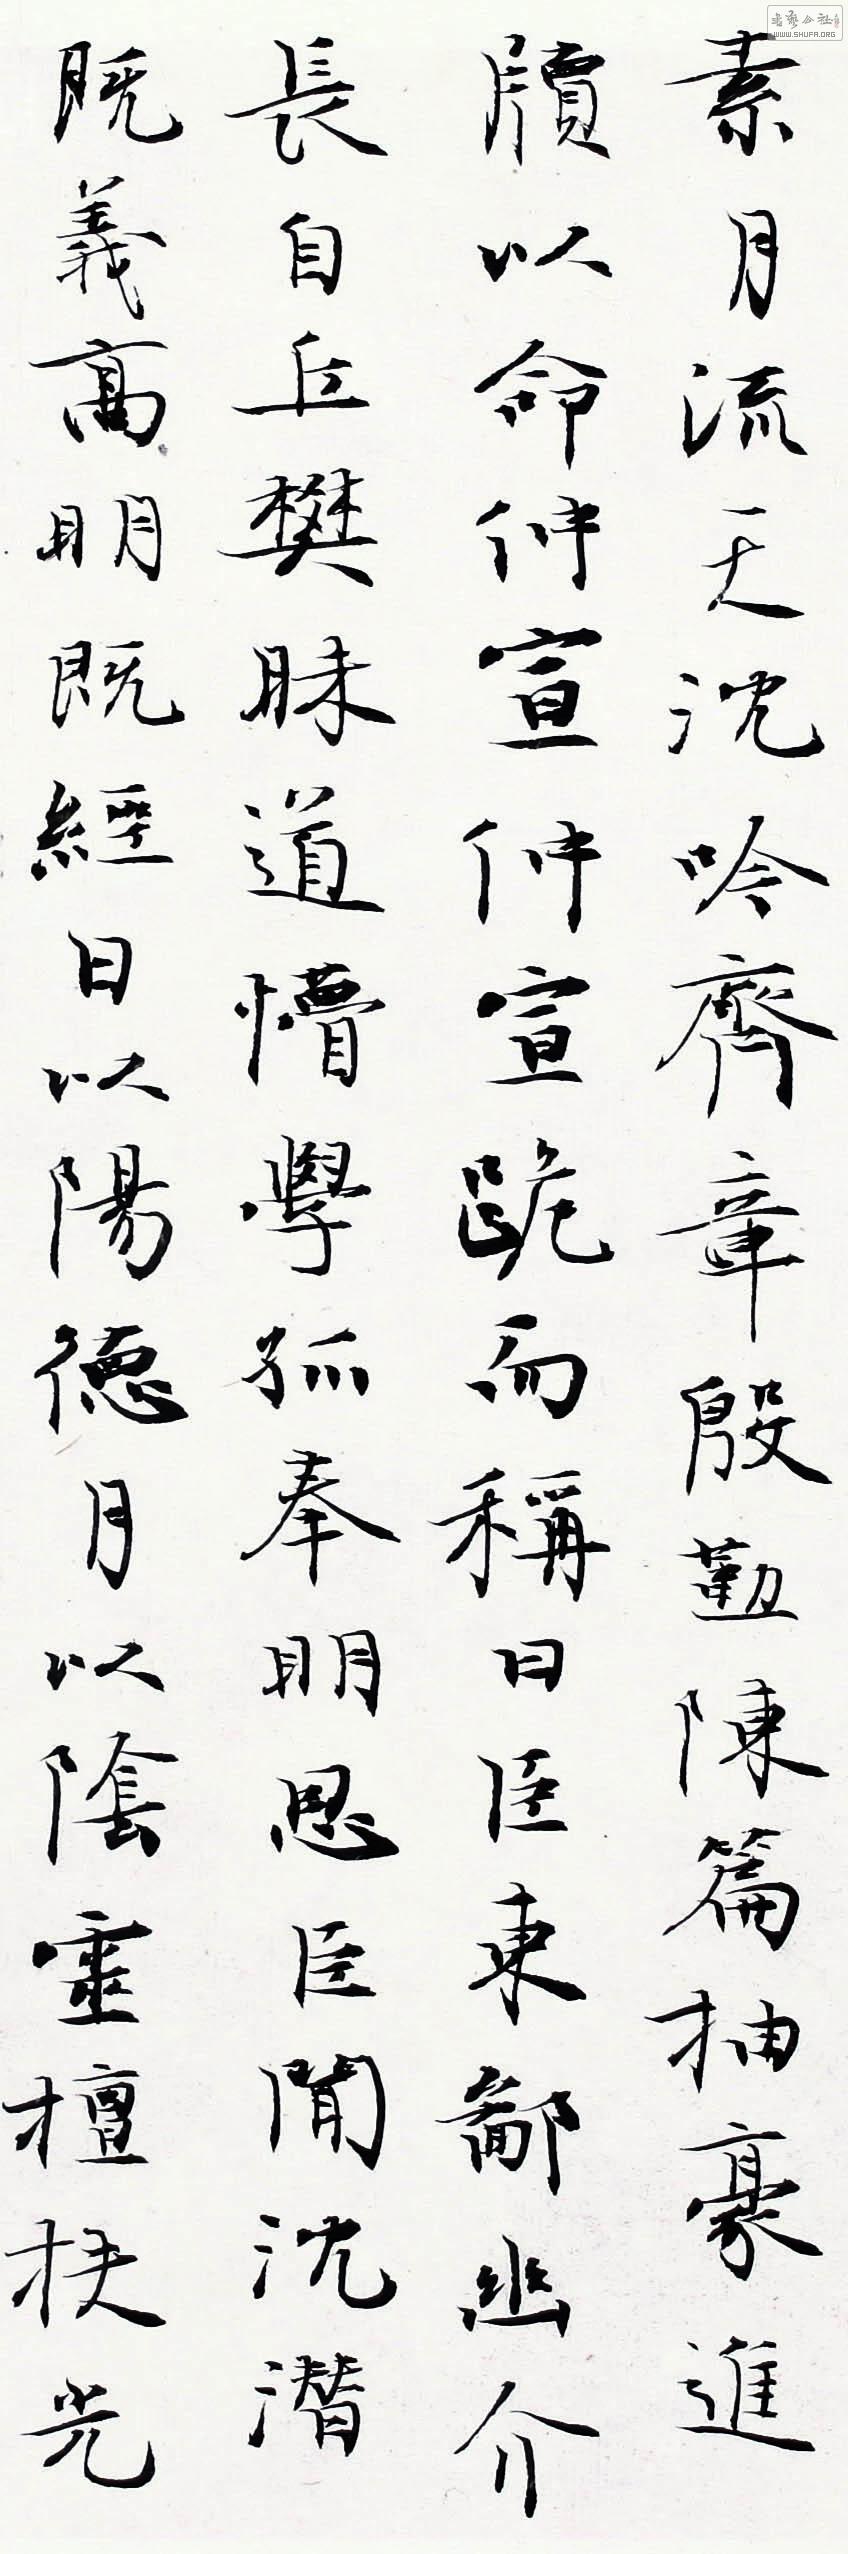 素月流天沈吟齊章殷勤陳篇抽豪進
牘以命仲宣仲宣跪而稱曰臣東鄙幽介
長自丘樊昧道懵學孤奉明恩臣聞沈潛
既義高明既經日以陽德月以陰靈擅扶光
書藝公社
WWW.SHUFA.ORG